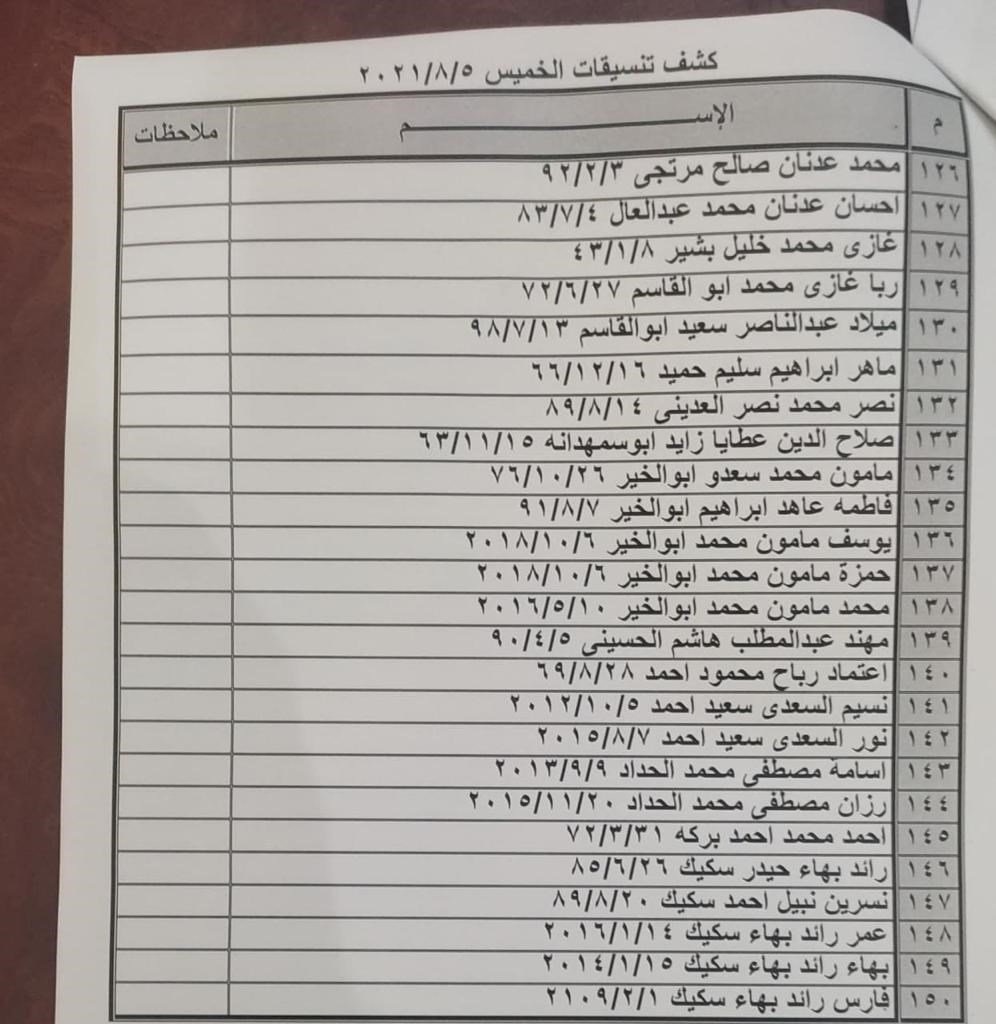 كشف تنسيقات الخميس ٢٠٢١/٨/٥
م الإســــــــــــــم ملاحظات
١٢٦ محمد عدنان صالح مرتجى ٩٢/٢/٣
١٢٧ احسان عدنان محمد عبدالعال ٨٣/٧/٤
١٢٨ غازى محمد خليل بشير ٤٣/١/٨
١٢٩ ربا غازى محمد ابو القاسم ٧٢/٦/٢٧
١٣٠ ميلاد عبدالناصر سعيد ابوالقاسم ٩٨/٧/١٣
١٣١ ماهر ابراهيم سليم حميد ٦٦/١٢/١٦
١٣٢ نصر محمد نصر العدينى ٨٩/٨/١٤
١٣٣ صلاح الدين عطايا زايد ابوسمهدانه ٦٣/١١/١٥
١٣٤ مامون محمد سعدو ابوالخير ٧٦/١٠/٢٦
١٣٥ فاطمه عاهد ابراهيم ابوالخير ٩١/٨/٧
١٣٦ يوسف مامون محمد ابوالخير ٢٠١٨/١٠/٦
١٣٧ حمزة مامون محمد ابوالخير ٢٠١٨/١٠/٦
١٣٨ محمد مامون محمد ابوالخير ٢٠١٦/٥/١٠
١٣٩ مهند عبدالمطلب هاشم الحسينى ٩٠/٤/٥
١٤٠ اعتماد رباح محمود احمد ٦٩/٨/٢٨
١٤١ نسيم السعدى سعيد احمد ٢٠١٢/١٠/٥
١٤٢ نور السعدى سعيد احمد ٢٠١٥/٨/٧
١٤٣ اسامة مصطفى محمد الحداد ٢٠١٣/٩/٩
١٤٤ رزان مصطفى محمد الحداد ٢٠١٥/١١/٢٠
١٤٥ احمد محمد احمد بركه ٧٢/٣/٣١
١٤٦ رائد بهاء حيدر سكيك ٨٥/٦/٢٦
١٤٧ نسرين نبيل احمد سكيك ٨٩/٨/٢٠
١٤٨ عمر رائد بهاء سكيك ٢٠١٦/١/١٤
١٤٩ بهاء رائد بهاء سكيك ٢٠١٤/١/١٥
١٥٠ فارس رائد بهاء سكيك ٢١٠٩/٢/١